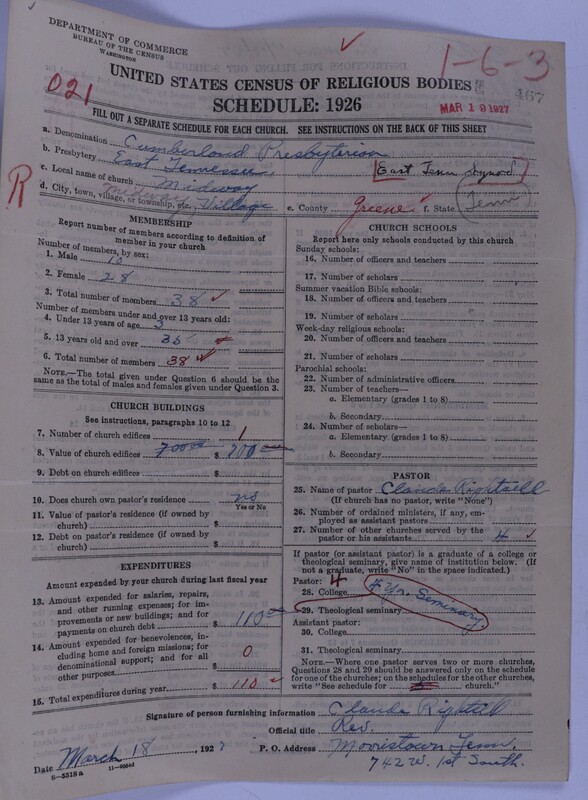 DEPARTMENT OF COMMERCE
BUREAU OF THE CENSUS
WASHINGTON
1-6-3
UNITED STATES CENSUS OF RELIGIOUS BODIES
467
021
SCHEDULE: 1926
MAR 19 1927
FILL OUT A SEPARATE SCHEDULE FOR EACH CHURCH. SEE INSTRUCTIONS ON THE BACK OF THIS SHEET
a. Denomination Cumberland Presbyterian
b. Presbytery East Tennessee East Tenn Synod
c. Local name of church Midway
R
d. City, town, village, or township, etc. Midway Village e. County Greene f. State Tenn
MEMBERSHIP
Report number of members according to definition of member in your church
Number of members, by sex:
1. Male 10
2. Female 28
3. Total number of members 38
Number of members under and over 13 years old:
4. Under 13 years of age 3
5. 13 years old and over 35
6. Total number of members 38
NOTE.—The total given under Question 6 should be the same as the total of males and females given under Question 3.
CHURCH BUILDINGS
See instructions, paragraphs 10 to 12
7. Number of church edifices 1
8. Value of church edifices 700 00 $ 700
9. Debt on church edifices $
10. Does church own pastor's residence no
Yes or No
11. Value of pastor's residence (if owned by church) $
12. Debt on pastor's residence (if owned by church) $
EXPENDITURES
Amount expended by your church during last fiscal year
13. Amount expended for salaries, repairs, and other running expenses; for improvements or new buildings; and for payments on church debt $ 110
14. Amount expended for benevolences, including home and foreign missions; for denominational support; and for all other purposes $ 0
15. Total expenditures during year $ 110
CHURCH SCHOOLS
Report here only schools conducted by this church
Sunday schools:
16. Number of officers and teachers
17. Number of scholars
Summer vacation Bible schools:
18. Number of officers and teachers
19. Number of scholars
Week-day religious schools:
20. Number of officers and teachers
21. Number of scholars
Parochial schools:
22. Number of administrative officers
23. Number of teachers—
a. Elementary (grades 1 to 8)
b. Secondary
24. Number of scholars—
a. Elementary (grades 1 to 8)
b. Secondary
PASTOR
25. Name of pastor Claude Rightsell
(If church has no pastor, write "None")
26. Number of ordained ministers, if any, employed as assistant pastors
27. Number of other churches served by the pastor or his assistants 4
If pastor (or assistant pastor) is a graduate of a college or theological seminary, give name of institution below. (If not a graduate, write "No" in the space indicated.)
Pastor: 4
28. College Yr. Seminary
29. Theological seminary
Assistant pastor:
30. College
31. Theological seminary
NOTE.—Where one pastor serves two or more churches, Questions 28 and 29 should be answered only on the schedule for one of the churches; on the schedules for the other churches, write "See schedule for church."
Signature of person furnishing information Claude Rightsell
Official title Rev.
Date March 18, 1927 P. O. Address Morristown Tenn.
8-5318a 742 W. 1st South.